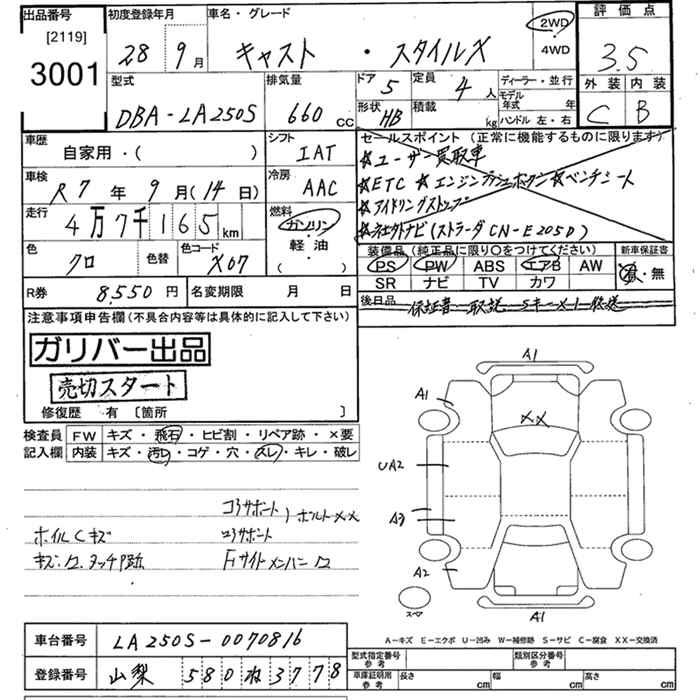 出品番号
[2119]
3001
初度登録年月
28年 9月
車名・グレード
キャスト ・ スタイルX
2WD
4WD
評価点
3.5
外装 内装
C B
型式
DBA-LA250S
排気量
660 cc
ドア 5
定員 4人
形状 HB
積載 kg
ディーラー・並行
モデル年式 年
ハンドル 左・右
車歴
自家用・( )
シフト
IAT
車検
R7年 9月(14日)
冷房
AAC
走行
4万7千165km
燃料
ガソリン
軽・油
( )
色
クロ
色替
色コード
X07
R券 8,550円
名変期限 月 日
セールスポイント (正常に機能するものに限ります)
☆ユーザー買取車
☆ETC ☆エンジンプッシュボタン ☆ベンチシート
☆アイドリングストップ
☆社外ナビ(ストラーダ CN-E205D)
装備品 (純正品に限り○をつけてください)
PS PW ABS エアB AW
SR ナビ TV カワ
新車保証書
有・無
後日品
保証書 取説 Sキー×1 発送
注意事項申告欄(不具合内容等は具体的に記入して下さい)
ガリバー出品
売切スタート
修復歴 有 [箇所 ]
検査員記入欄
FW キズ・飛石・ヒビ割・リペア跡・×要
内装 キズ・汚レ・コゲ・穴・スレ・キレ・破レ
コアサポート ボルト××
ホイルCキズ
コアサポート
キズ.凹.タッチP跡
Fサイドメンバー凹
A1
A1
××
UA2
A3
A2
A1
スペア
A-キズ E-エクボ U-凹み W-補修跡 S-サビ C-腐食 XX-交換済
車台番号 LA250S-0070816
登録番号 山梨 580 ね 3778
型式指定番号 参考
類別区分番号 参考
車庫証明用 参考 長さ cm 幅 cm 高さ cm